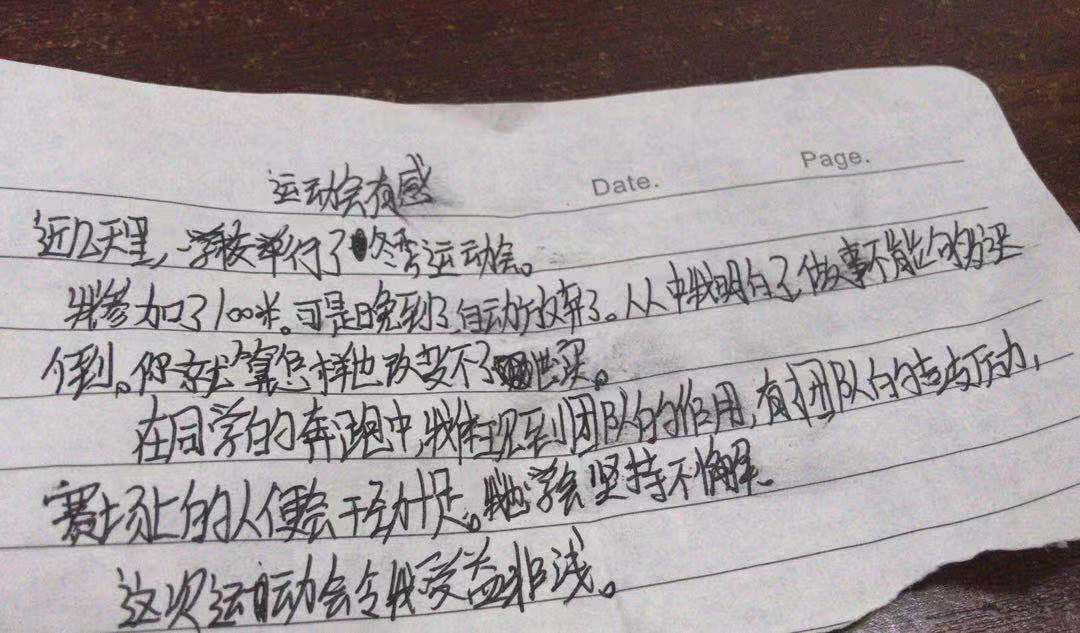 Page.
Date.
运动会有感
近几天里,学校举行了冬季运动会。
我参加了100米。可是晚到了,自动放弃了。从中我明白了做事不能
到。你就算怎样也改变不了
在同学的奔跑中,我看见到团队的作用,有团队的
赛场上的人便会干劲十足。我也学会坚持不懈
这次运动会令我受益非浅。